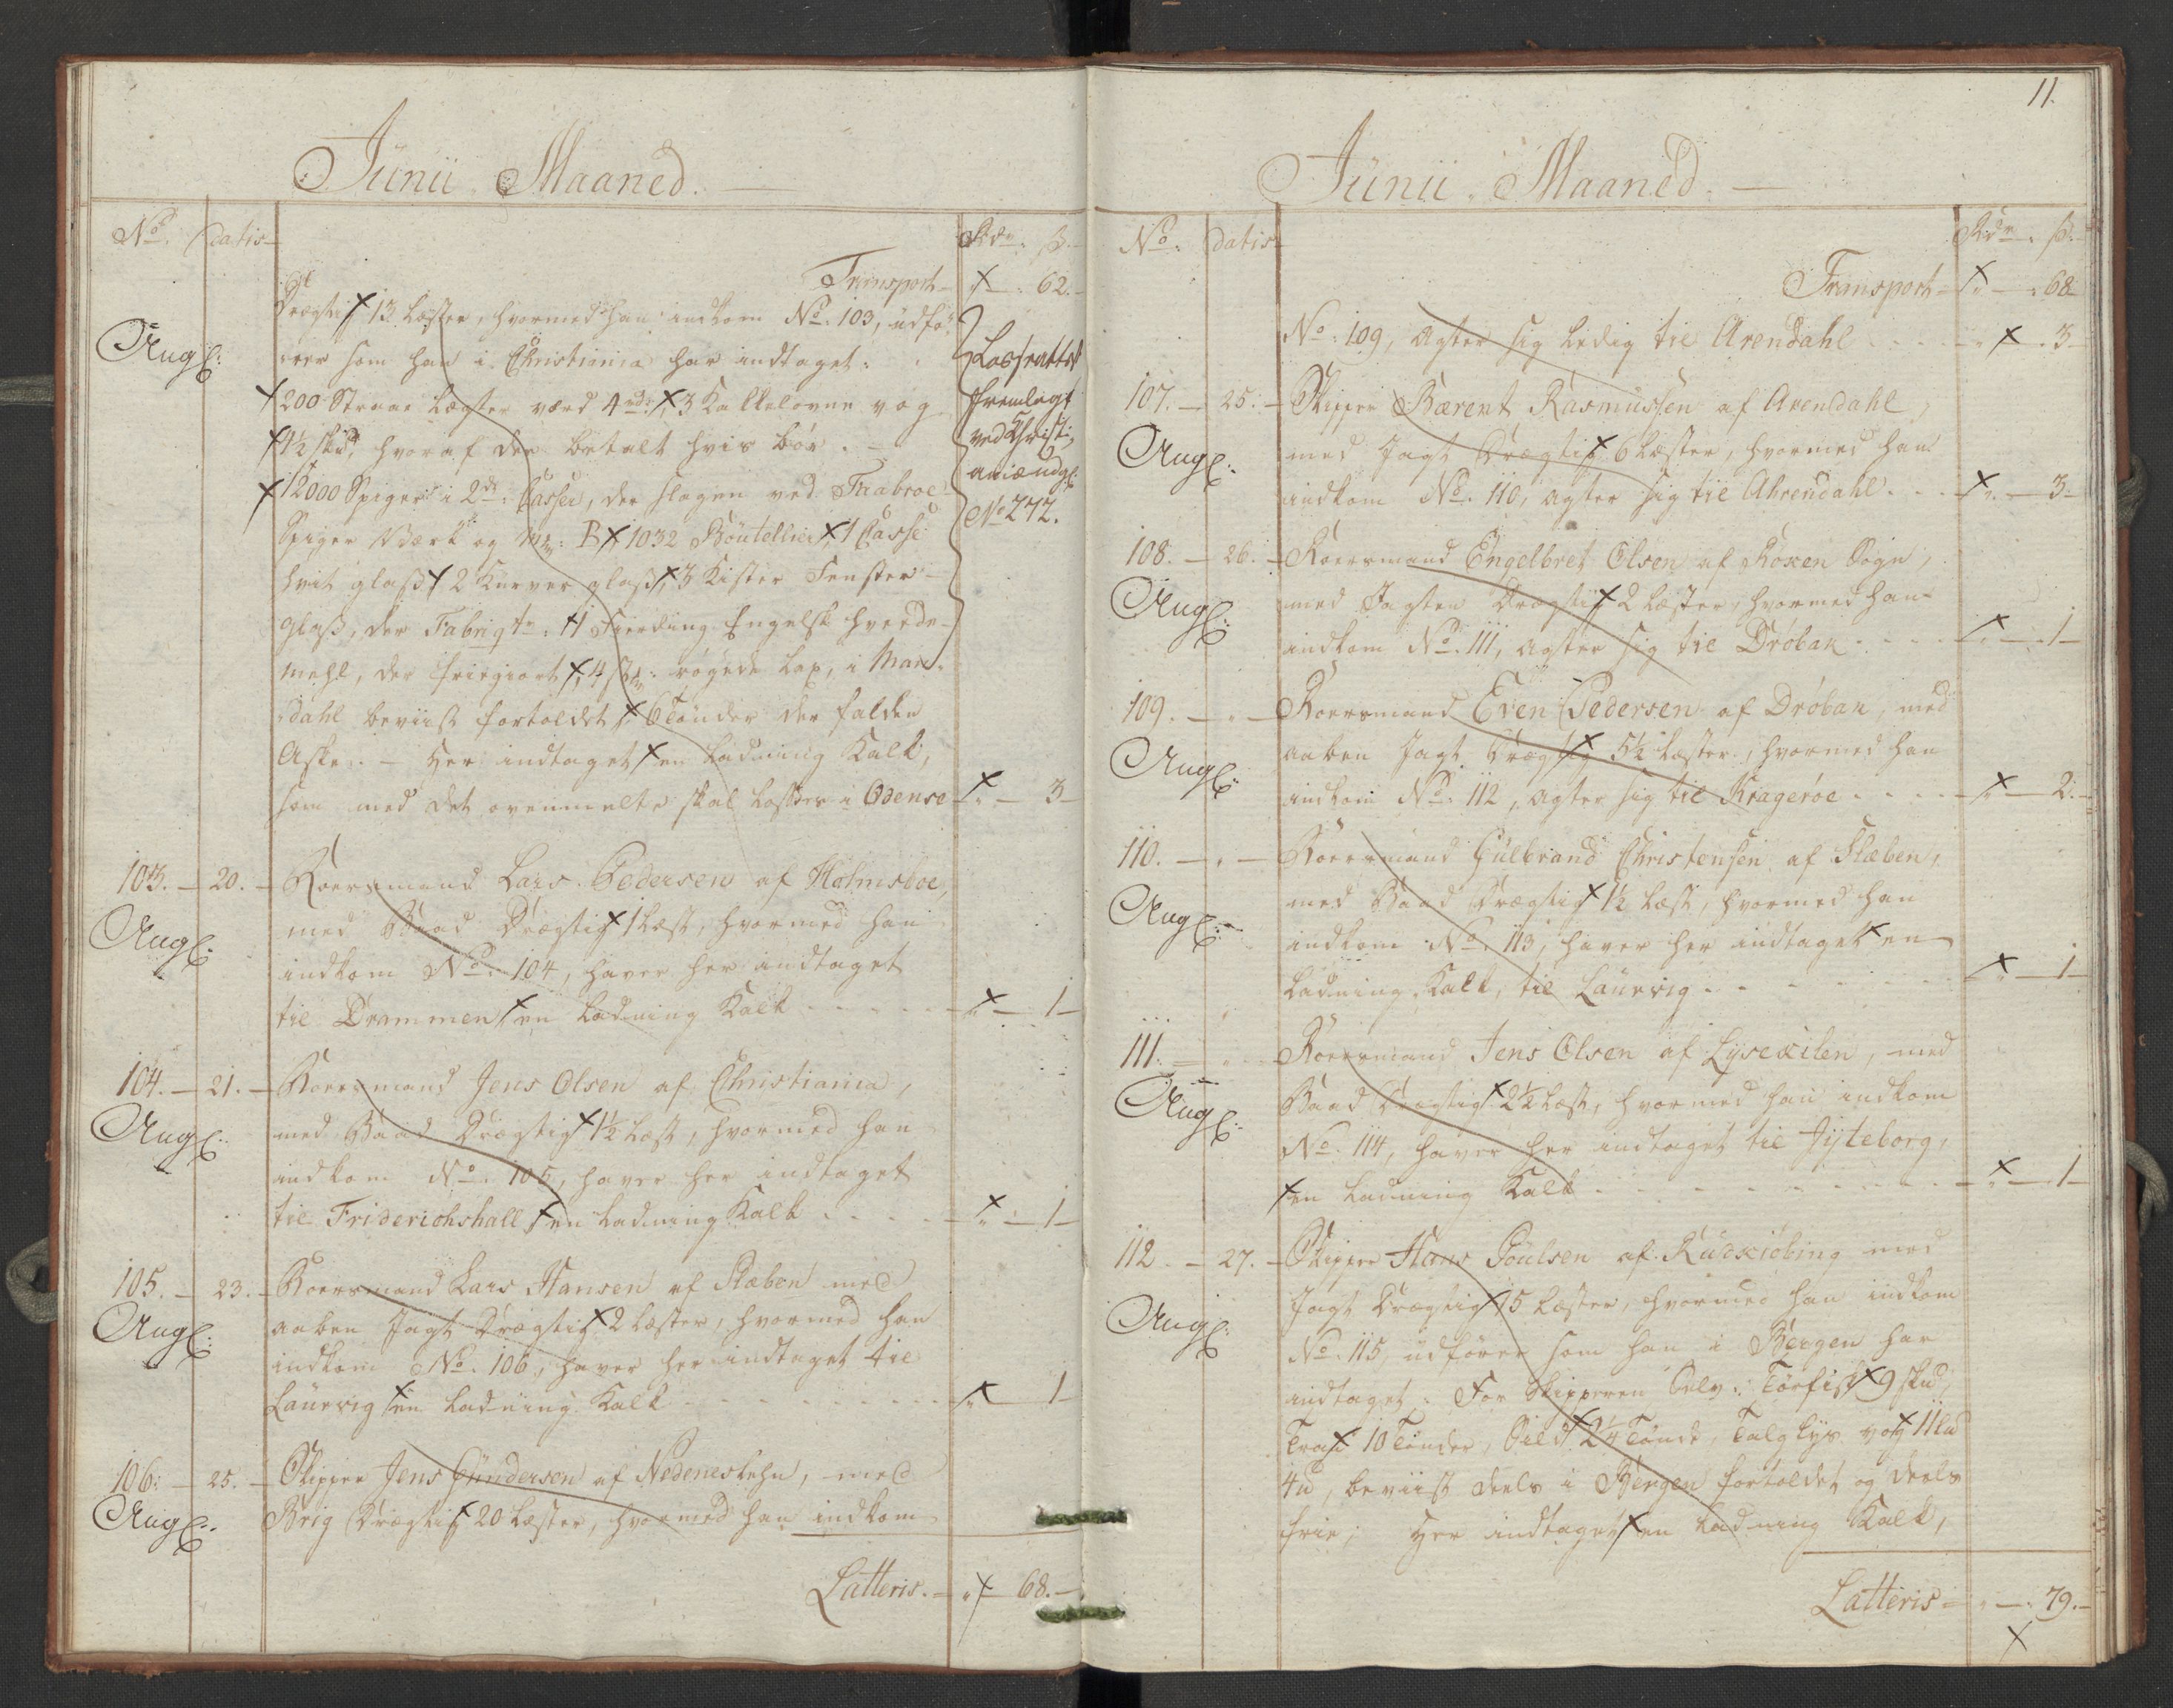 Junii Maaned.
No. Datis Rdr. ß.
Transport 62.
Drægtig 13 Læster, hvormed han indkom No. 103, udfø-
Angl: rer som han i Christiania har indtaget:
200 Straae Lægter værd 4 rdr, 3 Kakkelovne vog
4½ skd, hvoraf der betalt hvis bør.
12000 Spiger i 2de Casser, der slagen ved
Spiger Værk og B, 1032 Boutellier, 1 Casse
hvit glaß, 2 Kurver glaß, 3 Kister Fenster
glaß, der Fabriqtr. 1 Fierding Engelsk hvede-
mehl, der friegiort, 4 røgede Lax, i Man-
dahl beviist fortoldet, 6 Tønder der falden
Aske. - Her indtaget en Ladning Kalk,
som med det ovenmelte skal losses i Odense 3
fremlagt
ved Christi-
No 272.
103. 20. Roersmand Lars Pedersen af Holmsboe,
Angl: med Baad Drægtig 1 Læst, hvormed han
indkom No. 104, haver her indtaget
til Drammen en Ladning Kalk 1
104. 21. Roersmand Jens Olsen af Christiania,
Angl: med Baad Drægtig 1½ Læst, hvormed han
indkom No. 105, haver her indtaget
til Friderichshall en Ladning Kalk 1
105. 23. Roersmand Lars Hansen af Slæben med
Angl: aaben Jagt Drægtig 2 Læster, hvormed han
indkom No. 106, haver her indtaget til
Laurvig en Ladning Kalk 1
106. 25. Skipper Jens Gundersen af Nedeneslehn, med
Angl: Brig Drægtig 20 Læster, hvormed han indkom
Latteris. 68.
11.
Junii Maaned.
No. Datis Rdr. ß.
Transport 68
No. 109, agter sig ledig til Arendahl 3
107. 25. Skipper Bærent Rasmussen af Arendahl,
Angl: med Jagt Drægtig 6 Læster, hvormed han
indkom No. 110, agter sig til Ahrendahl 3
108. 26. Roersmand Engelbret Olsen af Røxen Sogn,
Angl: med Jagten Drægtig 2 Læster, hvormed han
indkom No. 111, agter sig til Drøbak 1
109. Roersmand Even Pedersen af Drøbak, med
Angl: aaben Jagt Drægtig 5½ Læster, hvormed han
indkom No. 112, agter sig til Kragerøe 2.
110. Roersmand Gulbrand Christensen af Slæben,
Angl: med Baad Drægtig 1½ Læst, hvormed han
indkom No. 113, haver her indtaget en
Ladning Kalk, til Laurvig 1
111. Roersmand Jens Olsen af Lysekilen, med
Angl: Baad Drægtig 2½ Læst, hvormed han indkom
No. 114, haver her indtaget til Jyteborg,
en Ladning Kalk 1
112. 27. Skipper Hans Poulsen af Rudkiøbing med
Angl: Jagt Drægtig 15 Læster, hvormed han indkom
No. 115, udfører som han i Bergen har
indtaget: For Skipperen Selv: Tørfisk 9 skud,
Tran 10 Tønder, Sild 2¼ Tønde, Talg Lys vog 11
4, beviist deels i Bergen fortoldet og deels
frie; Her indtaget en Ladning Kalk,
Latteris 79.